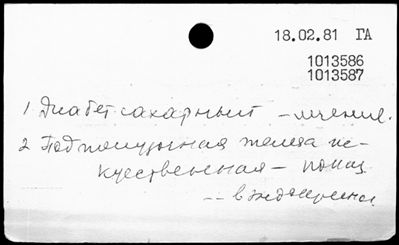 18.02.81 ГА
1013586
1013587
1 Диабет сахарный – лечение.
2 Поджелудочная железа ис-
кусственная – показ.
-- в эндокрин.